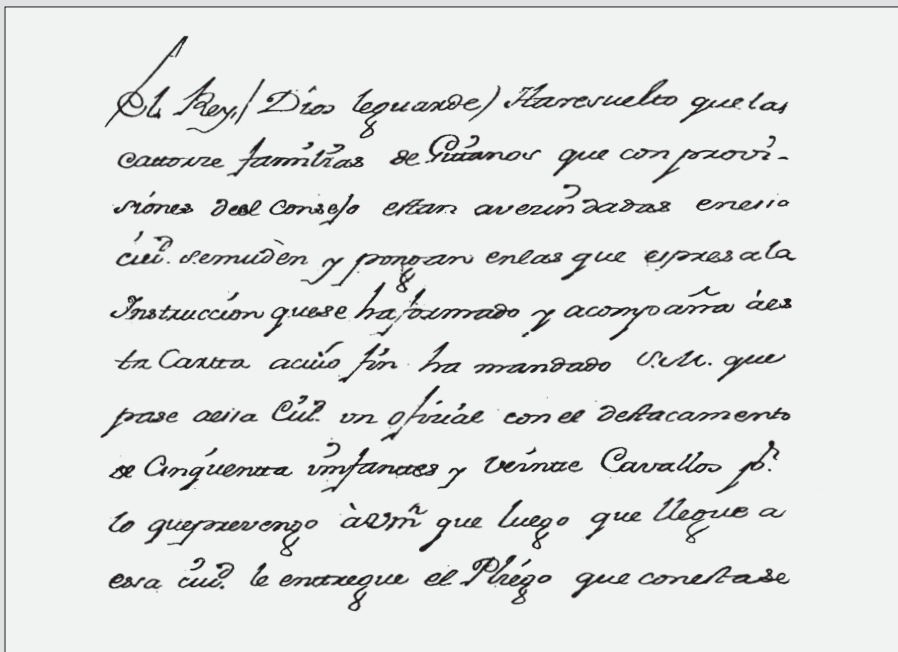 El Rey (Dios leguarde) Haresuelto que las
catorze familias de Gittanos que con provi-
siones deel Consejo estan avezindadas enessa
ciud. semudèn y pongan enlas que espresa la
Instruccion quese ha formado y acompaña àes
ta Cartta acuio fin ha mandado S.M. que
pase aessa Ciud. vn ofizial con el destacamento
de Cinquentta ynfantes y veinte Cavallos pr.
lo queprevengo àVm que luego que llegue a
essa ciud. le entregue el Pliego que conesta se